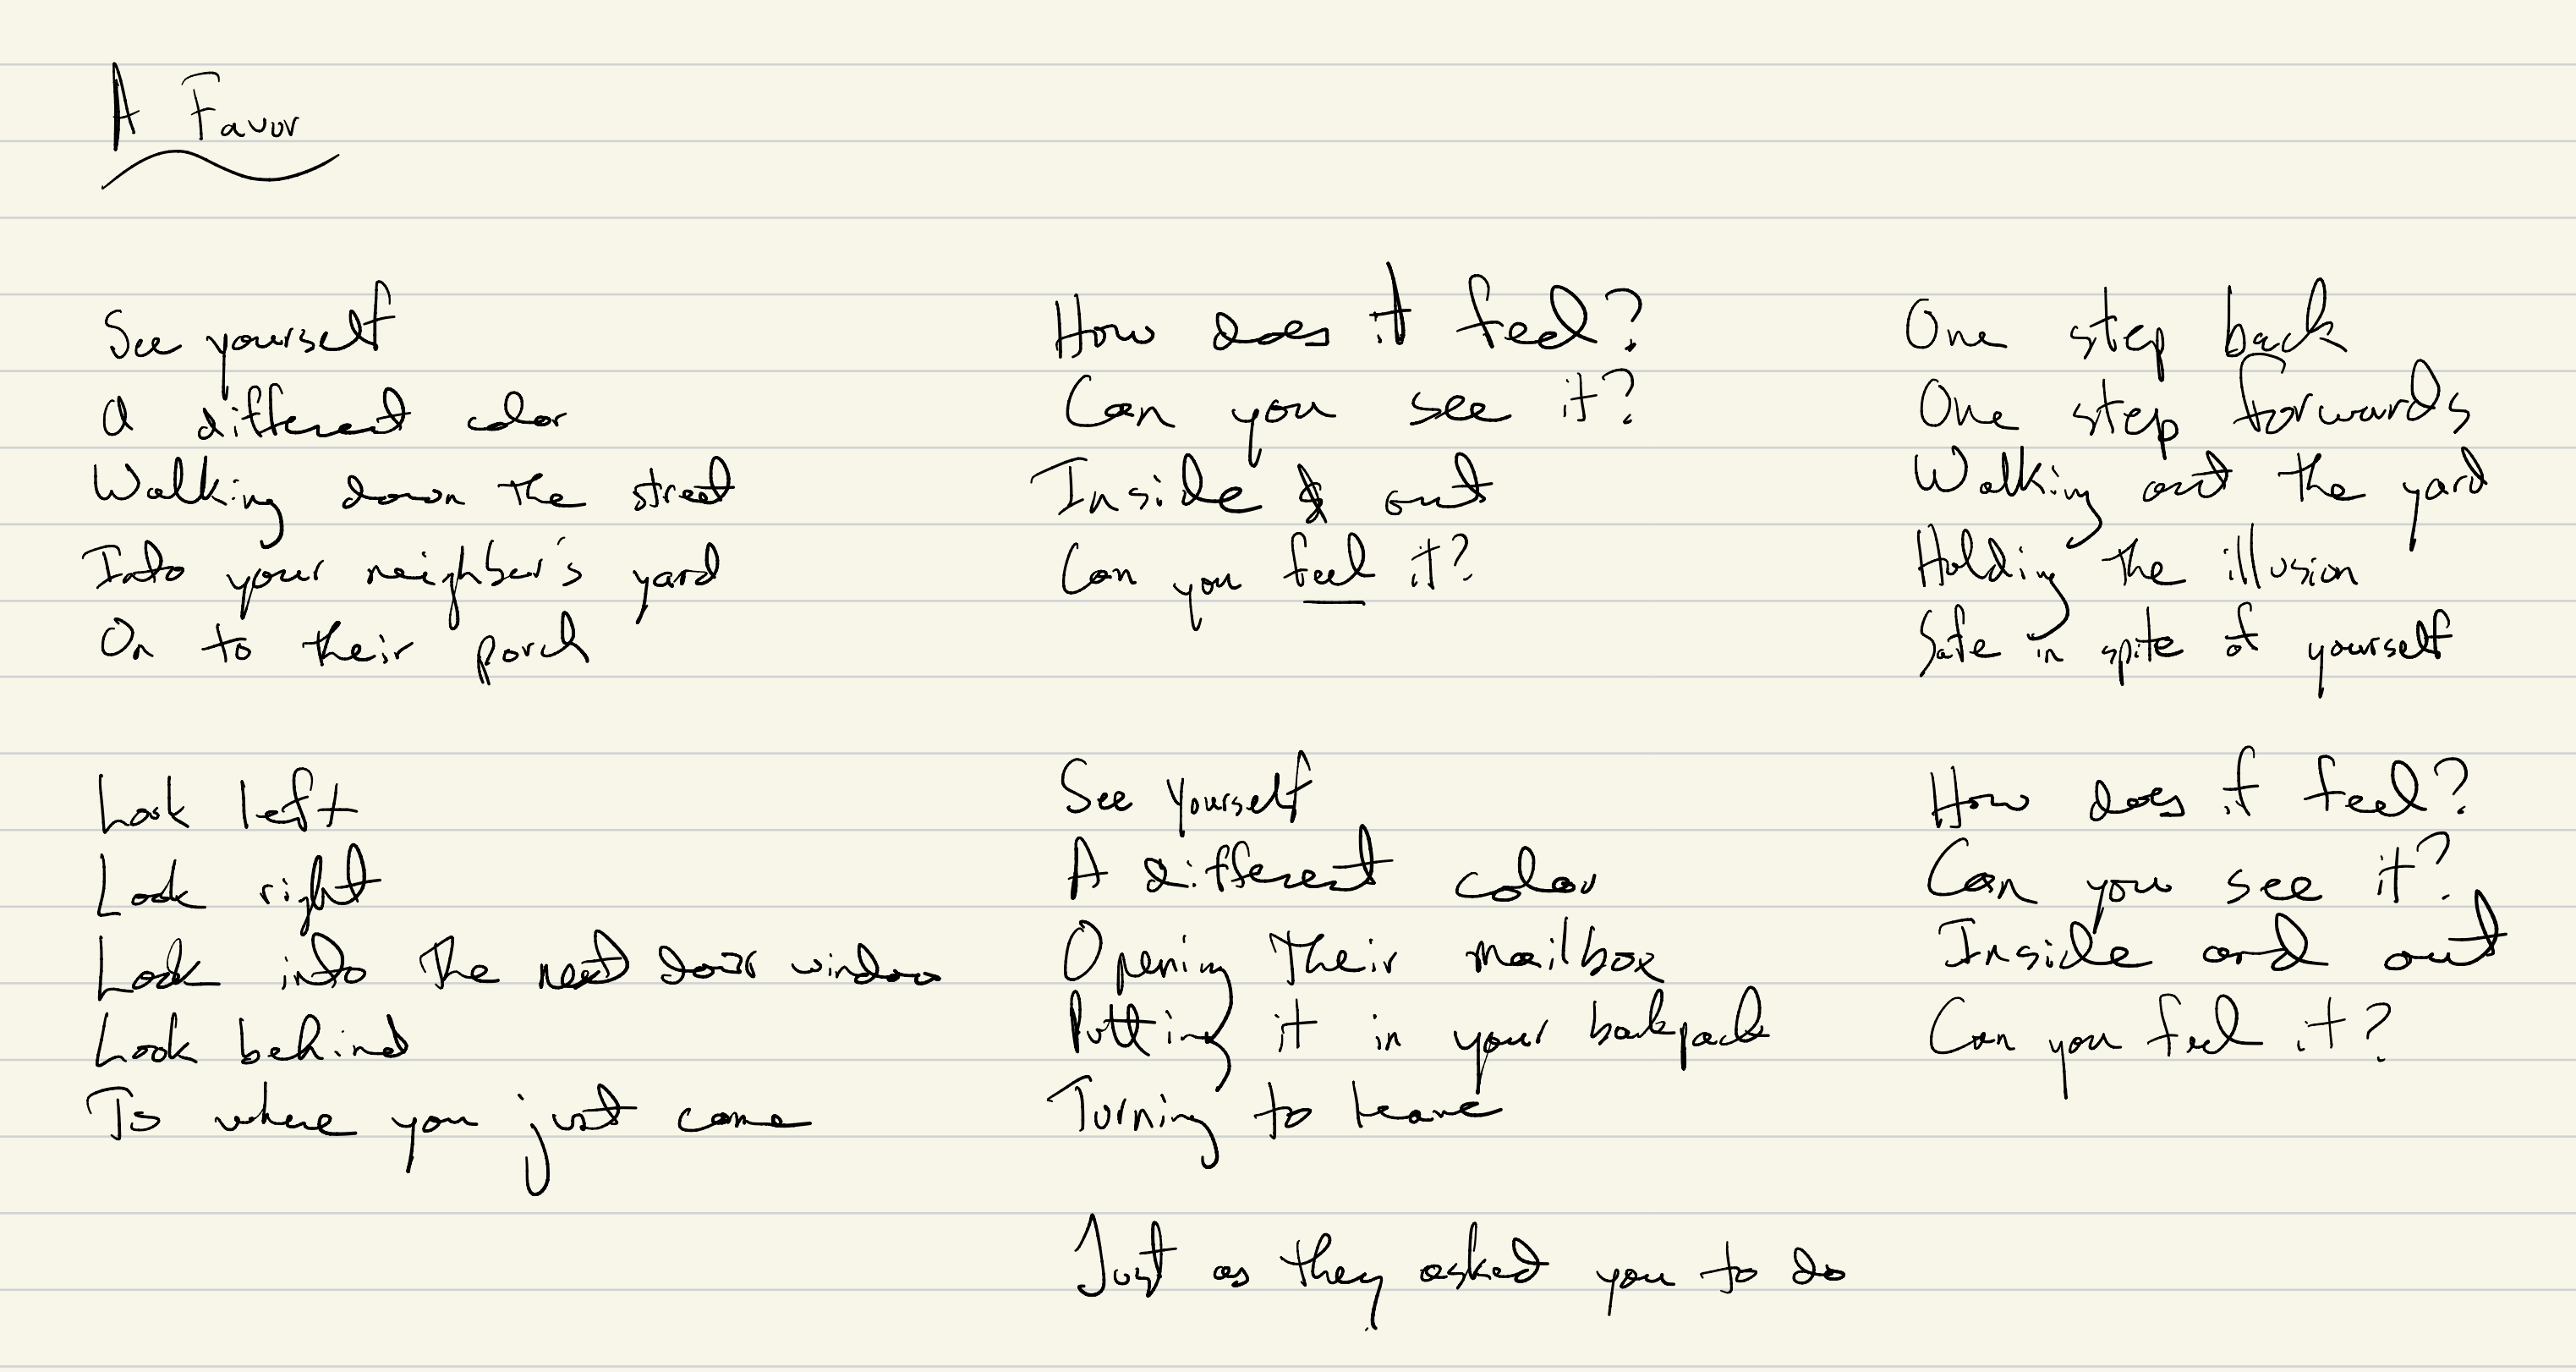 A Favor
See yourself
A different color
Walking down the street
Into your neighbor's yard
On to their porch
Look left
Look right
Look into the next door window
Look behind
To where you just came
How does it feel?
Can you see it?
Inside & out
Can you feel it?
See yourself
A different color
Opening their mailbox
Putting it in your backpack
Turning to leave
Just as they asked you to do
One step back
One step forwards
Walking out the yard
Holding the illusion
Safe in spite of yourself
How does it feel?
Can you see it?
Inside and out
Can you feel it?